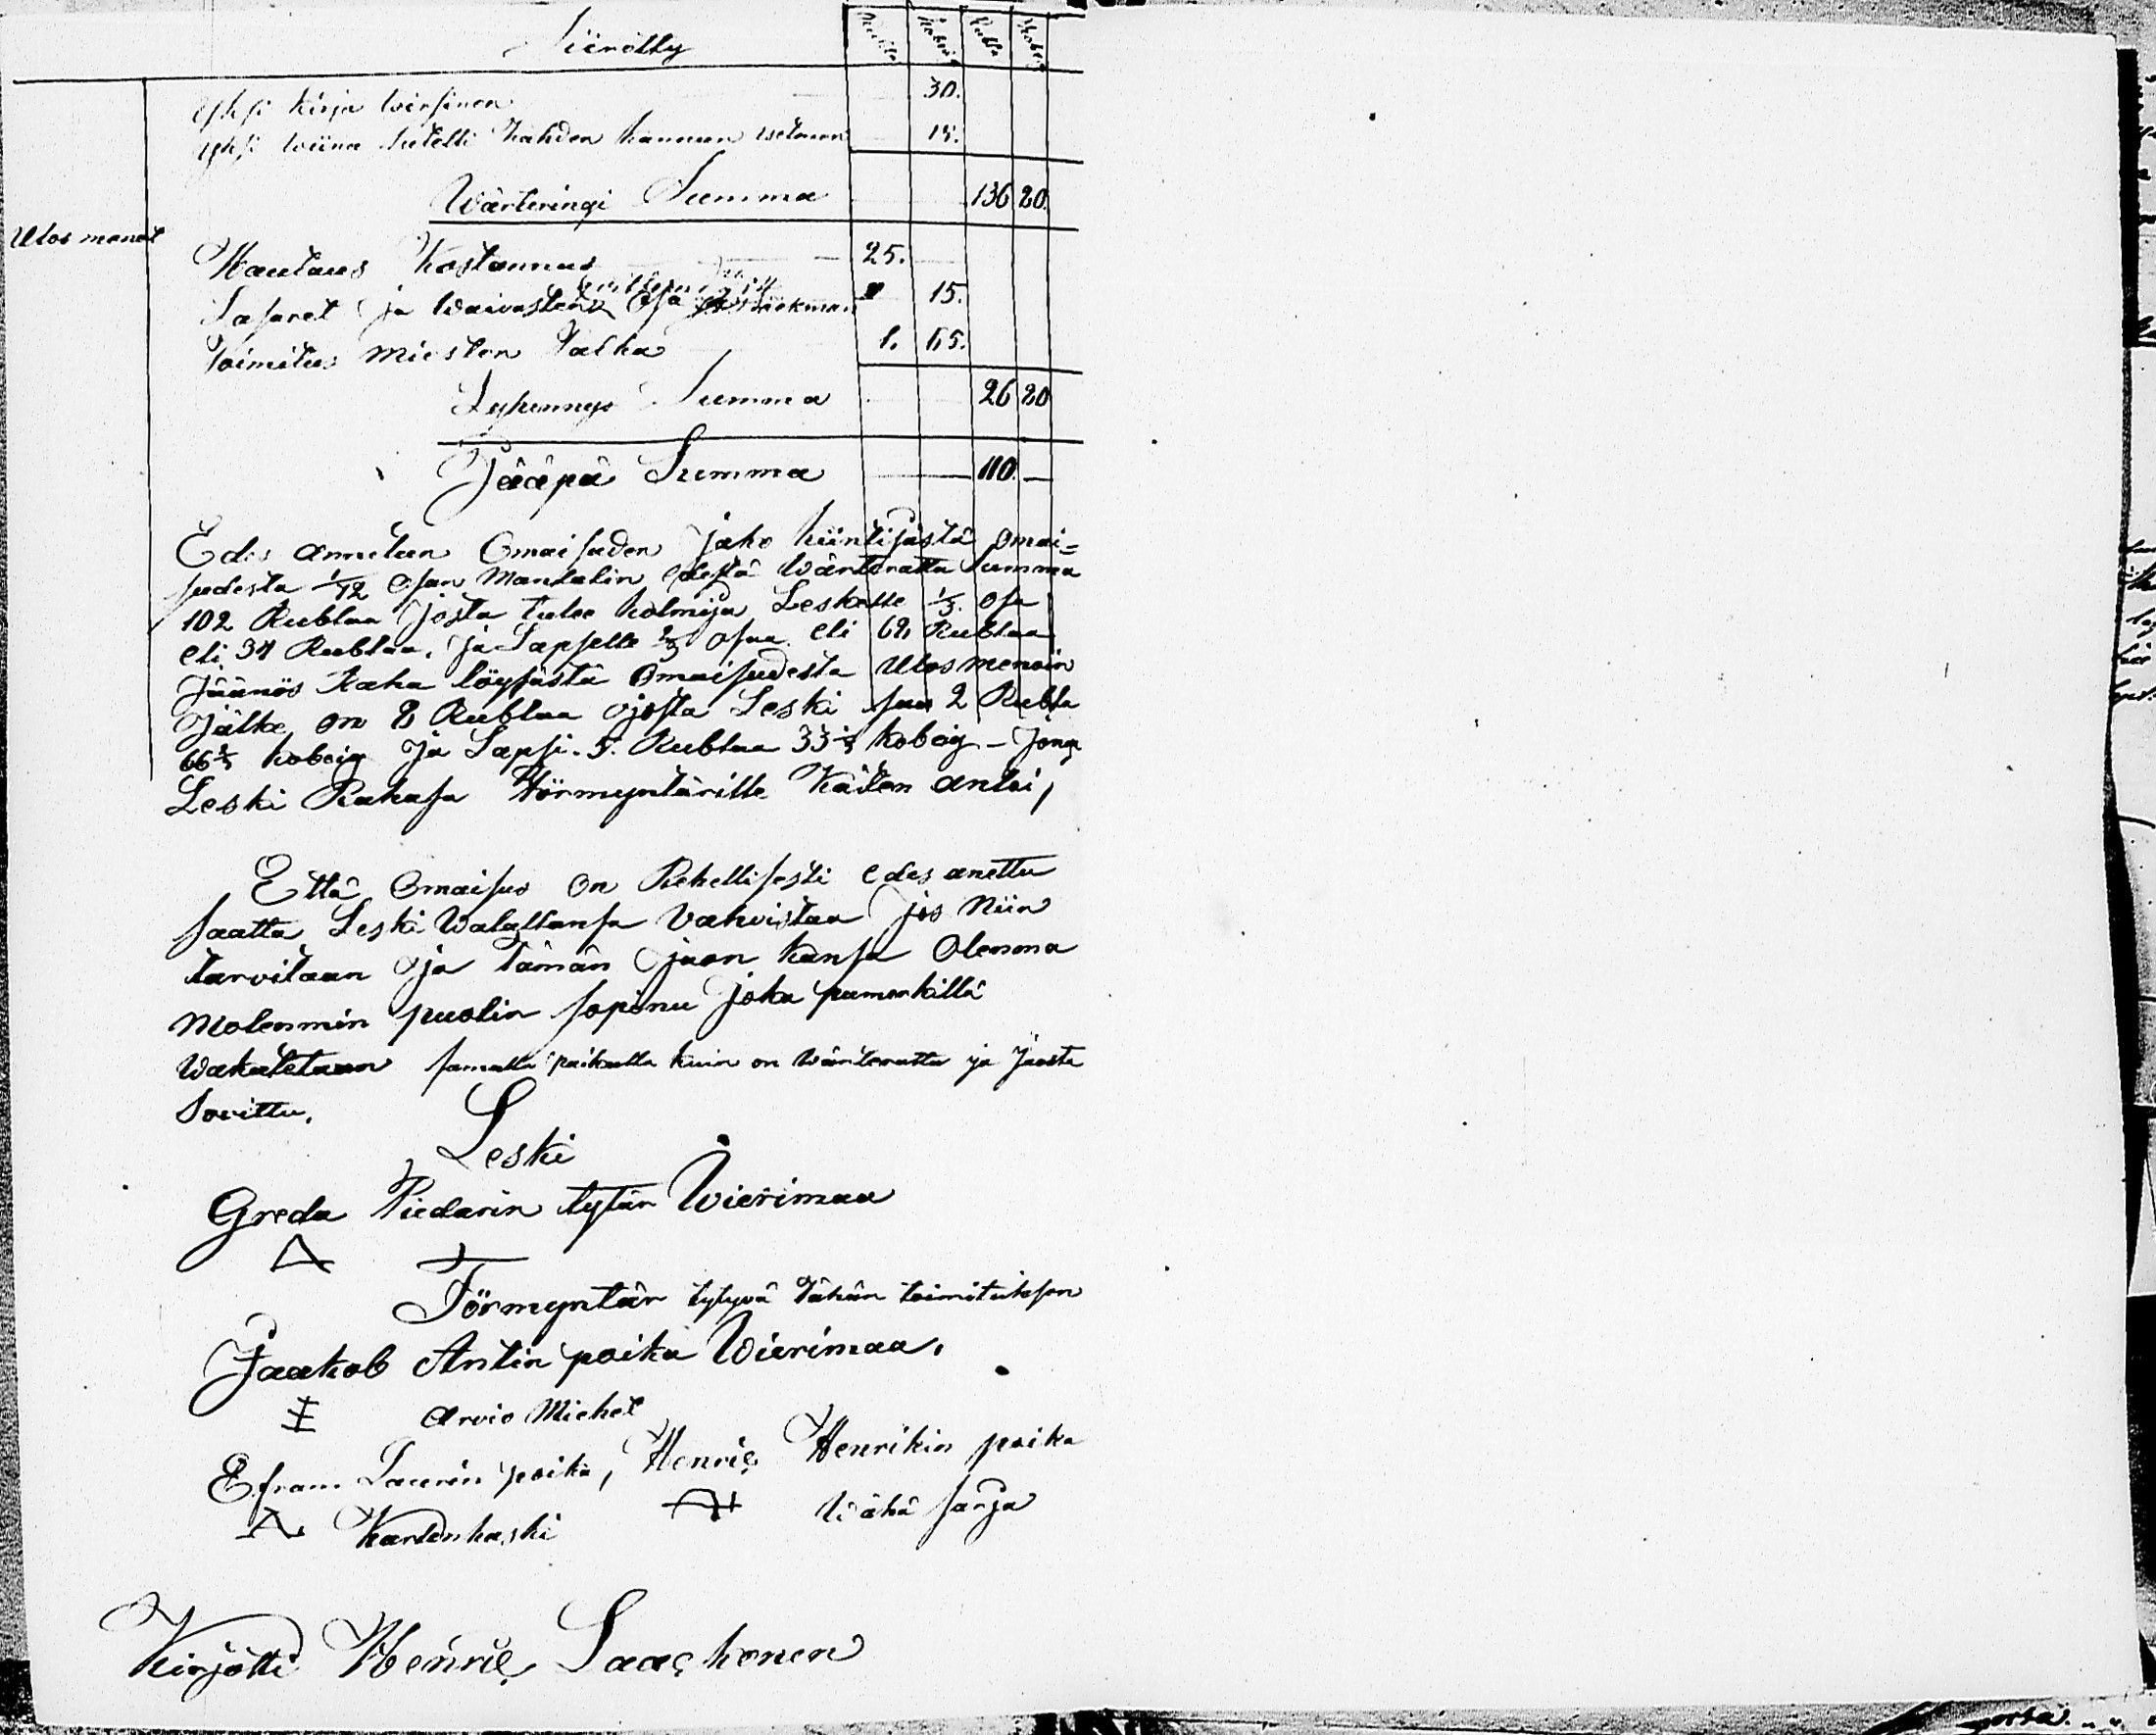 Siirätty Rubla Kobeig Rubla Kobeig
Yksi kirja wirsinen 30.
Yksi wiina putelli kahden kannun vetouin 15.
Wärteringi Summa 136 80.
Ulos menot
Hautaus kostannus 25.
Lasaret ja waivasten Osa 15.
Toimitus miesten Palka 1. 65.
Lyhennys Summa 26 80
Jääpä Summa 110. —
Edes annetun Omaisuden jako kiintijästä omai=
sudesta 1/12 Osan Mantalin edestä Wärteratta Summa
102 Rublaa josta tulee kolmija Leskelle 1/3. Osa
eli 34 Rublaa. ja Lapselle 2/3 osaa eli 68 Rublaa
Jäänös Raha löysästä Omaisudesta Ulosmenoin
Jälke on 8 Rublaa josta Leski saa 2 Rubla
66 2/3 kobeig Ja Lapsi. 5. Rublaa 33 1/3 kobeig – Jonga
Leski Rahasa Förmyntärille Käten antoi,
Että Omaisus on Rehellisesti edes anettu
saatta Leski Walallansa vahvistaa jos Niin
tarvitaan ja tämän jaon kansa Olemma
Molemmin puolin sopinu joka pumerkillä
Wakutetaan samalla paikalla kuin on wärteratta ja Jaosta
Sovittu.
Leski
Greda Piedarin tytär Wierimaa
Förmyntär tytyvä tähän toimituksen
Jaakob Antin poika Wierimaa.
Arvio Miehet
Efram Laurin poika, Henric Henrikin poika
Kartenkaski Wähä sarja
Kirjotti Henric Laaçkonen